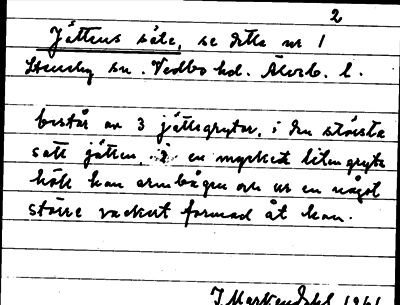 2
Jättens säte, se detta nr 1
Steneby sn. Vedbo hd. Älvsb. l.
består av 3 jättegrytor, i den största
satt jätten, i en mycket liten gryta
höll han armbågen och ur en något
större vackert formad åt han.
1961